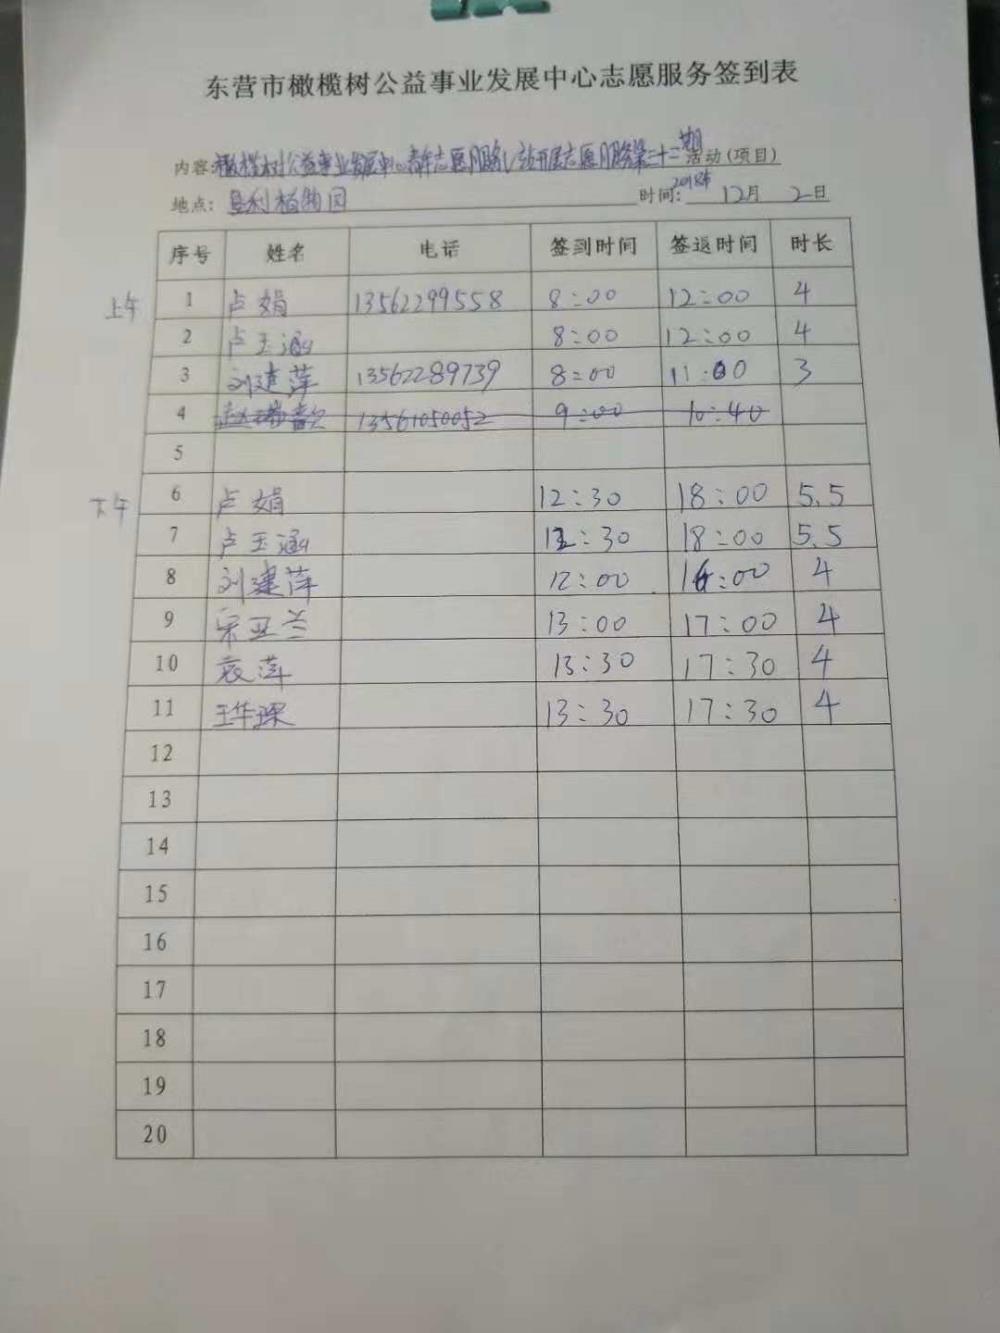 东营市橄榄树公益事业发展中心志愿服务签到表
内容:橄榄树公益事业发展中心青年志愿服务V站开展志愿服务第二十二期活动(项目)
地点:垦利植物园 时间:2018年12月2日
序号 姓名 电话 签到时间 签退时间 时长
上午 1 卢娟 13562299558 8:00 12:00 4
2 卢玉涵 8:00 12:00 4
3 刘建萍 13562289739 8:00 11:00 3
4 赵 13561050052 9:00 10:40
5
下午 6 卢娟 12:30 18:00 5.5
7 卢玉涵 12:30 18:00 5.5
8 刘建萍 12:00 16:00 4
9 宋亚兰 13:00 17:00 4
10 袁萍 13:30 17:30 4
11 王华琛 13:30 17:30 4
12
13
14
15
16
17
18
19
20